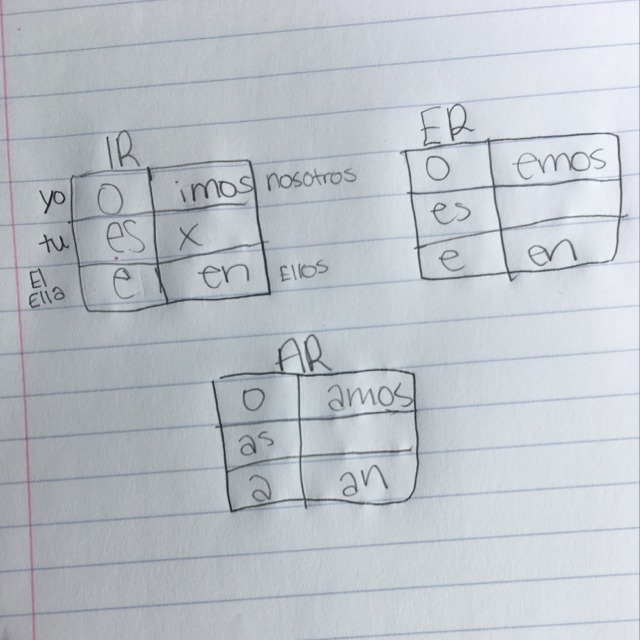 IR
yo O imos nosotros
tu es x
El
Ella e en Ellos
ER
O emos
es
e en
AR
O amos
as
a an